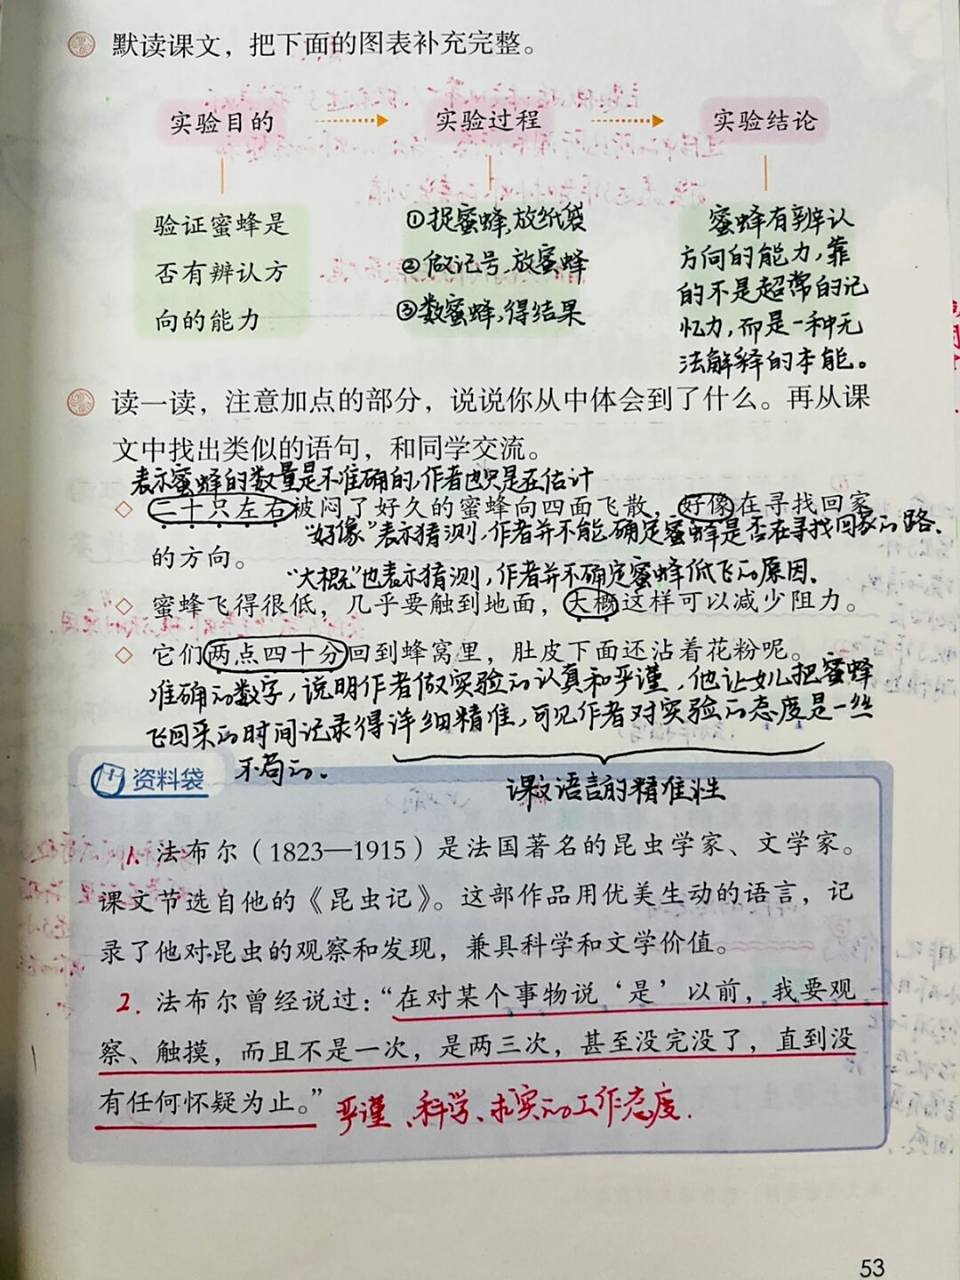 默读课文，把下面的图表补充完整。
实验目的 实验过程 实验结论
验证蜜蜂是
否有辨认方
向的能力
①捉蜜蜂,放纸袋
②做记号,放蜜蜂
③数蜜蜂,得结果
蜜蜂有辨认
方向的能力,靠
的不是超常的记
忆力,而是一种无
法解释的本能。
读一读，注意加点的部分，说说你从中体会到了什么。再从课
文中找出类似的语句，和同学交流。
表示蜜蜂的数量是不准确的,作者也只是在估计
◇ 二十只左右被闷了好久的蜜蜂向四面飞散，好像在寻找回家
"好像"表示猜测,作者并不能确定蜜蜂是否在寻找回家的路.
的方向。
"大概"也表示猜测,作者并不确定蜜蜂低飞的原因.
◇ 蜜蜂飞得很低，几乎要触到地面，大概这样可以减少阻力。
◇ 它们两点四十分回到蜂窝里，肚皮下面还沾着花粉呢。
准确的数字,说明作者做实验的认真和严谨,他让女儿把蜜蜂
飞回来的时间记录得详细精准,可见作者对实验的态度是一丝
不苟的.
课文语言的精准性
资料袋
1. 法布尔（1823—1915）是法国著名的昆虫学家、文学家。
课文节选自他的《昆虫记》。这部作品用优美生动的语言，记
录了他对昆虫的观察和发现，兼具科学和文学价值。
2. 法布尔曾经说过：“在对某个事物说‘是’以前，我要观
察、触摸，而且不是一次，是两三次，甚至没完没了，直到没
有任何怀疑为止。”
严谨、科学、求实的工作态度.
53